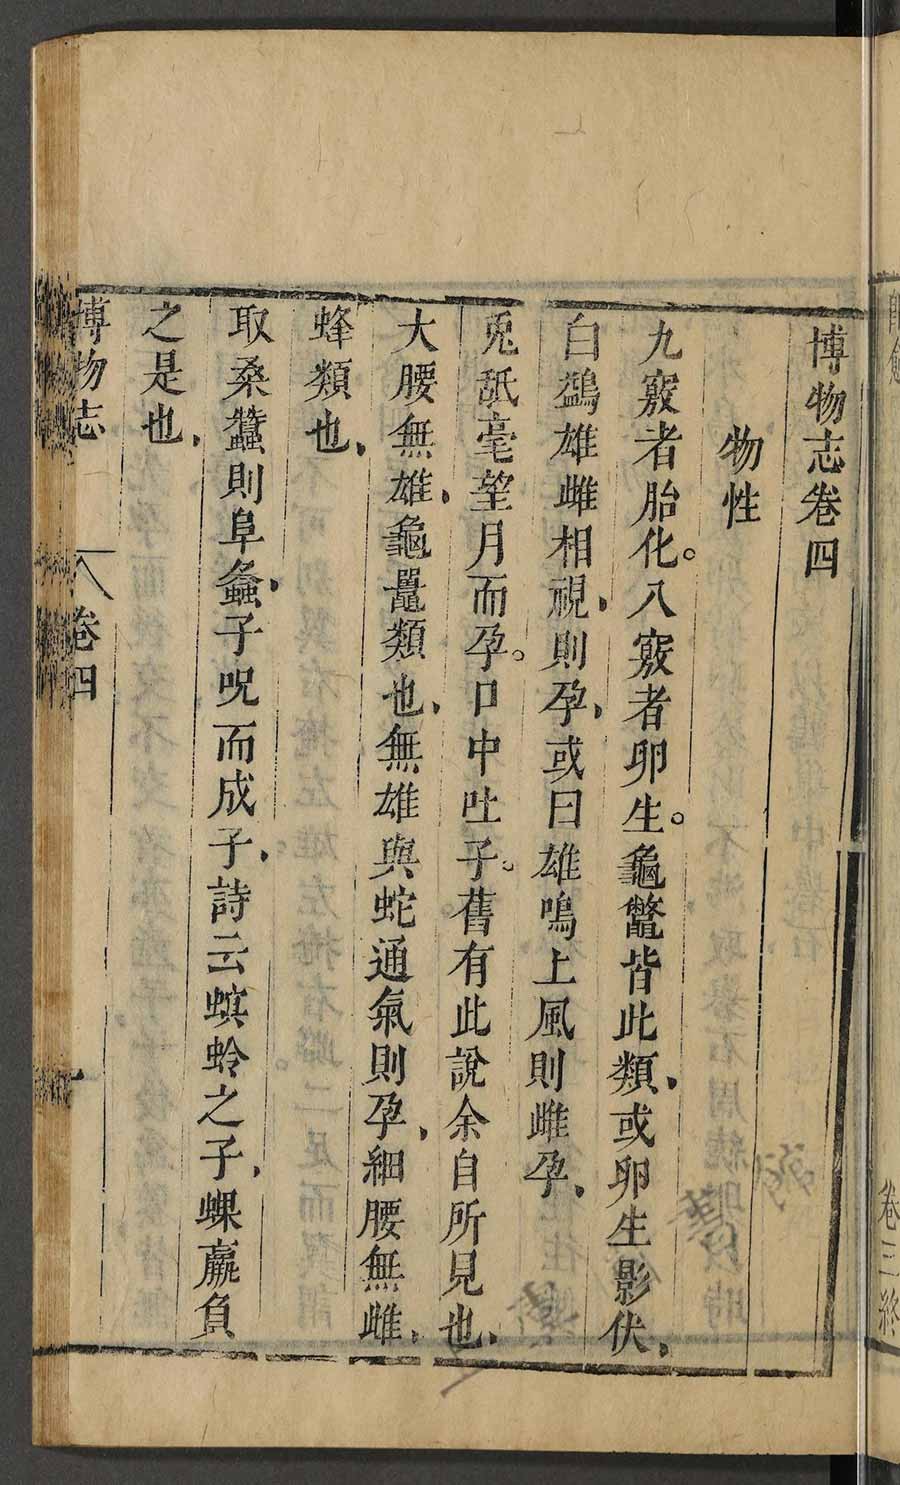 博物志卷四
物性
九竅者胎化。八竅者卵生。龜鼈皆此類、或卵生影伏、
白鷁雄雌相視、則孕、或曰雄鳴上風則雌孕、
兎舐毫望月而孕。口中吐子。舊有此說余自所見也、
大腰無雄、龜鼉類也、無雄與蛇通氣則孕、細腰無雌、
蜂類也、
取桑蠶則阜螽子呪而成子、詩云螟蛉之子、蜾蠃負
之是也、
博物志 卷四
卷三終